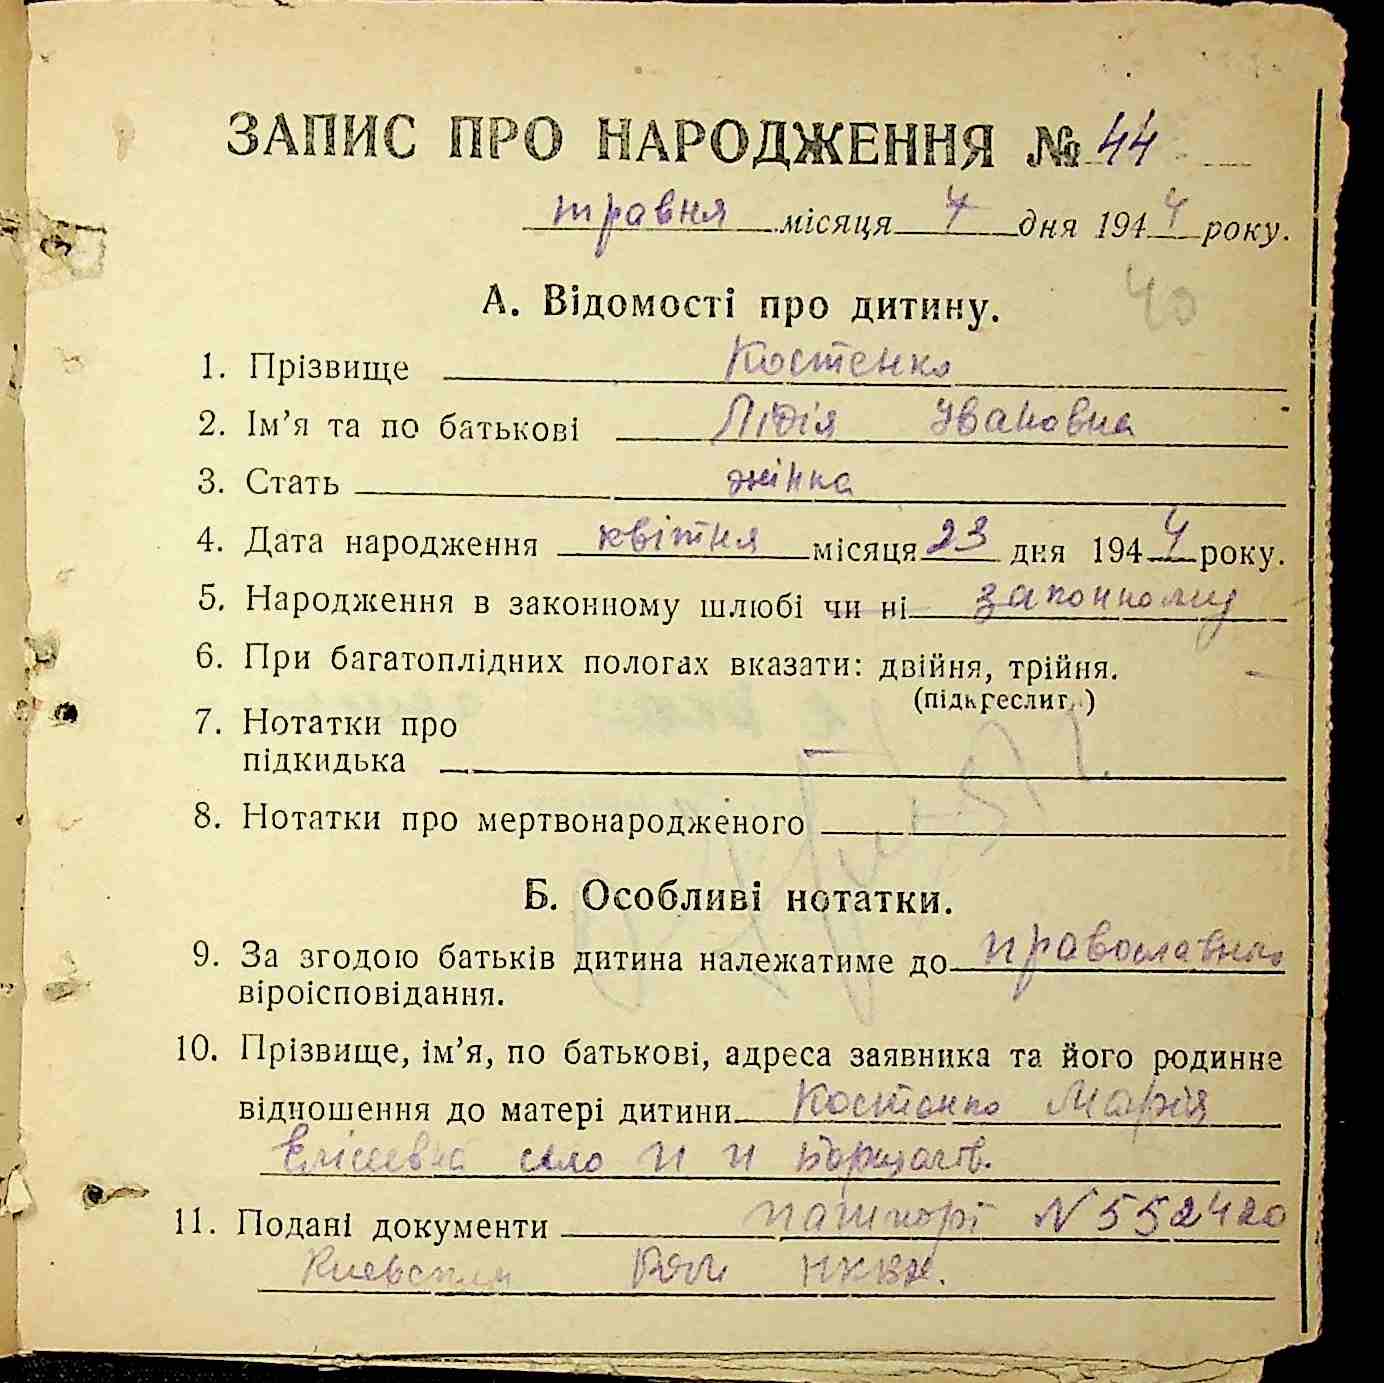 ЗАПИС ПРО НАРОДЖЕННЯ № 44
травня місяця 4 дня 1944 року.
40
А. Відомості про дитину.
1. Прізвище Костенко
2. Ім’я та по батькові Лідія Івановна
3. Стать жінка
4. Дата народження квітня місяця 23 дня 1944 року.
5. Народження в законному шлюбі чи ні законному
6. При багатоплідних пологах вказати: двійня, трійня.
(підкреслит.)
7. Нотатки про
підкидька —
8. Нотатки про мертвонародженого
Б. Особливі нотатки.
9. За згодою батьків дитина належатиме до православно
віроісповідання.
10. Прізвище, ім’я, по батькові, адреса заявника та його родинне
відношення до матері дитини Костенко Марія
Елісеївна село П П Борщагів.
11. Подані документи пашпорт N 552420
Киевским НКВД.